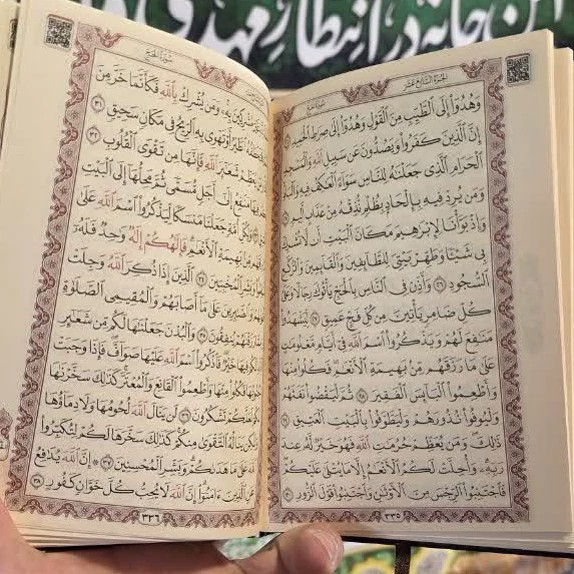 خانه در انتظار مهدی
الجزء السابع عشر
سورة الحج
وَهُدُوٓا إِلَى الطَّيِّبِ مِنَ الْقَوْلِ وَهُدُوٓا إِلَى صِرَٰطِ الْحَمِيدِ
إِنَّ الَّذِينَ كَفَرُوا وَيَصُدُّونَ عَن سَبِيلِ اللَّهِ وَالْمَسْجِدِ
الْحَرَامِ الَّذِى جَعَلْنَٰهُ لِلنَّاسِ سَوَآءً الْعَٰكِفُ فِيهِ وَالْبَادِ
وَمَن يُرِدْ فِيهِ بِإِلْحَادٍ بِظُلْمٍ نُّذِقْهُ مِنْ عَذَابٍ أَلِيمٍ
وَإِذْ بَوَّأْنَا لِإِبْرَٰهِيمَ مَكَانَ الْبَيْتِ أَن لَّا تُشْرِكْ
بِى شَيْـًٔا وَطَهِّرْ بَيْتِىَ لِلطَّآئِفِينَ وَالْقَآئِمِينَ وَالرُّكَّعِ
السُّجُودِ ٢٦ وَأَذِّن فِى النَّاسِ بِالْحَجِّ يَأْتُوكَ رِجَالًا وَعَلَىٰ
كُلِّ ضَامِرٍ يَأْتِينَ مِن كُلِّ فَجٍّ عَمِيقٍ ٢٧ لِّيَشْهَدُوا
مَنَٰفِعَ لَهُمْ وَيَذْكُرُوا اسْمَ اللَّهِ فِىٓ أَيَّامٍ مَّعْلُومَٰتٍ
عَلَىٰ مَا رَزَقَهُم مِّن بَهِيمَةِ الْأَنْعَٰمِ فَكُلُوا مِنْهَا
وَأَطْعِمُوا الْبَآئِسَ الْفَقِيرَ ٢٨ ثُمَّ لْيَقْضُوا تَفَثَهُمْ
وَلْيُوفُوا نُذُورَهُمْ وَلْيَطَّوَّفُوا بِالْبَيْتِ الْعَتِيقِ ٢٩
ذَٰلِكَ وَمَن يُعَظِّمْ حُرُمَٰتِ اللَّهِ فَهُوَ خَيْرٌ لَّهُ عِندَ
رَبِّهِ وَأُحِلَّتْ لَكُمُ الْأَنْعَٰمُ إِلَّا مَا يُتْلَىٰ عَلَيْكُمْ
فَاجْتَنِبُوا الرِّجْسَ مِنَ الْأَوْثَٰنِ وَاجْتَنِبُوا قَوْلَ الزُّورِ ٣٠
٣٣٥
سورة الحج
مُشْرِكِينَ بِهِ وَمَن يُشْرِكْ بِاللَّهِ فَكَأَنَّمَا خَرَّ مِنَ
الطَّيْرُ أَوْ تَهْوِى بِهِ الرِّيحُ فِى مَكَانٍ سَحِيقٍ ٣١
يُعَظِّمْ شَعَٰٓئِرَ اللَّهِ فَإِنَّهَا مِن تَقْوَى الْقُلُوبِ ٣٢
مَنَٰفِعُ إِلَىٰٓ أَجَلٍ مُّسَمًّى ثُمَّ مَحِلُّهَآ إِلَى الْبَيْتِ
وَلِكُلِّ أُمَّةٍ جَعَلْنَا مَنسَكًا لِّيَذْكُرُوا اسْمَ اللَّهِ عَلَىٰ
مِّن بَهِيمَةِ الْأَنْعَٰمِ فَإِلَٰهُكُمْ إِلَٰهٌ وَٰحِدٌ فَلَهُ
وَبَشِّرِ الْمُخْبِتِينَ ٣٤ الَّذِينَ إِذَا ذُكِرَ اللَّهُ وَجِلَتْ
وَالصَّٰبِرِينَ عَلَىٰ مَآ أَصَابَهُمْ وَالْمُقِيمِى الصَّلَوٰةِ
رَزَقْنَٰهُمْ يُنفِقُونَ ٣٥ وَالْبُدْنَ جَعَلْنَٰهَا لَكُم مِّن شَعَٰٓئِرِ
فِيهَا خَيْرٌ فَاذْكُرُوا اسْمَ اللَّهِ عَلَيْهَا صَوَآفَّ فَإِذَا وَجَبَتْ
جُنُوبُهَا فَكُلُوا مِنْهَا وَأَطْعِمُوا الْقَانِعَ وَالْمُعْتَرَّ كَذَٰلِكَ سَخَّرْنَٰهَا
لَعَلَّكُمْ تَشْكُرُونَ ٣٦ لَن يَنَالَ اللَّهَ لُحُومُهَا وَلَا دِمَآؤُهَا
وَلَٰكِن يَنَالُهُ التَّقْوَىٰ مِنكُمْ كَذَٰلِكَ سَخَّرَهَا لَكُمْ لِتُكَبِّرُوا
اللَّهَ عَلَىٰ مَا هَدَىٰكُمْ وَبَشِّرِ الْمُحْسِنِينَ ٣٧ إِنَّ اللَّهَ يُدَٰفِعُ
عَنِ الَّذِينَ ءَامَنُوٓا إِنَّ اللَّهَ لَا يُحِبُّ كُلَّ خَوَّانٍ كَفُورٍ ٣٨
٣٣٦